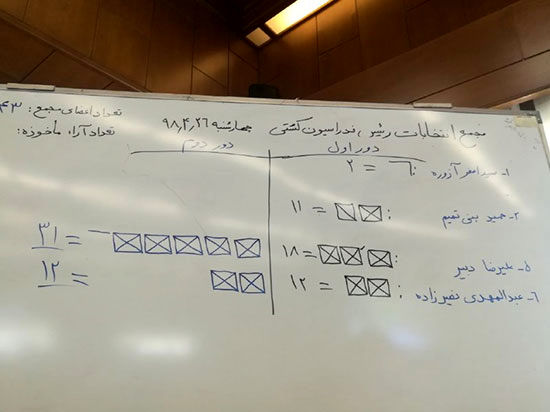 مجمع انتخابات رئیس فدراسیون کشتی چهارشنبه ۹۸٫۴٫۲۶
تعداد اعضای مجمع: ۴۳
تعداد آراء مأخوذه:
دور اول دور دوم
۱- سید امیر آذوره : = ۲
۲- حمید بنی تمیم : = ۱۱
۵- علیرضا دبیر : = ۱۸ = ۳۱
۶- عبدالمهدی نصیرزاده : = ۱۲ = ۱۲